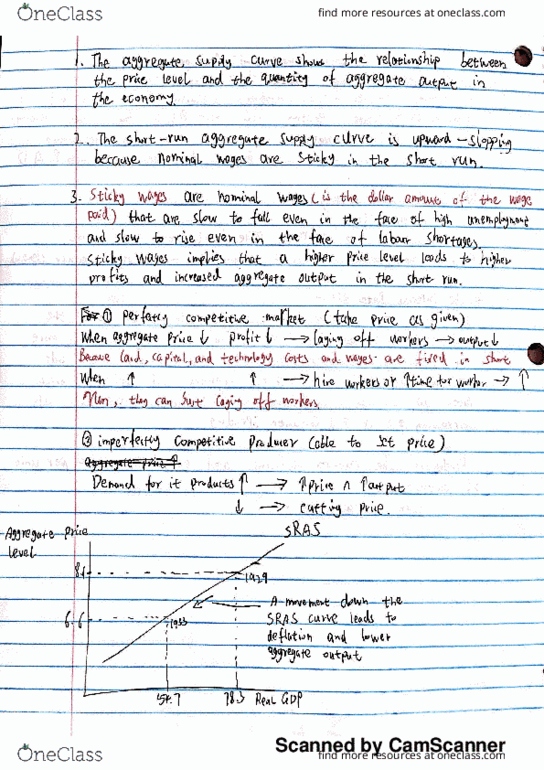 OneClass
find more resources at oneclass.com
1. The aggregate supply curve shows the relationship between
the price level and the quantity of aggregate output in
the economy
2. The short-run aggregate supply curve is upward-slopping
because nominal wages are sticky in the short run.
3. Sticky wages are nominal wages (is the dollar amount of the wage
paid) that are slow to fall even in the face of high unemployment
and slow to rise even in the face of labour shortages.
Sticky wages implies that a higher price level leads to higher
profits and increased aggregate output in the short run.
① perfectly competitive market (take price as given)
When aggregate price ↓ profit ↓ → laging off workers → output ↓
Because land, capital, and technology costs and wages are fixed in short
When ↑ ↑ → hire workers or ↑ time for worker → ↑
they can just laging off workers.
② imperfectly competitive producer (able to set price)
Aggregate price ↑
Demand for it products ↑ → ↑ price ∧ ↑ output
↓ → cutting price.
Aggregate price
level
SRAS
1929
6.6
1933
A movement down the
SRAS curve leads to
deflation and lower
aggregate output
Real GDP
Scanned by CamScanner
OneClass
find more resources at oneclass.com